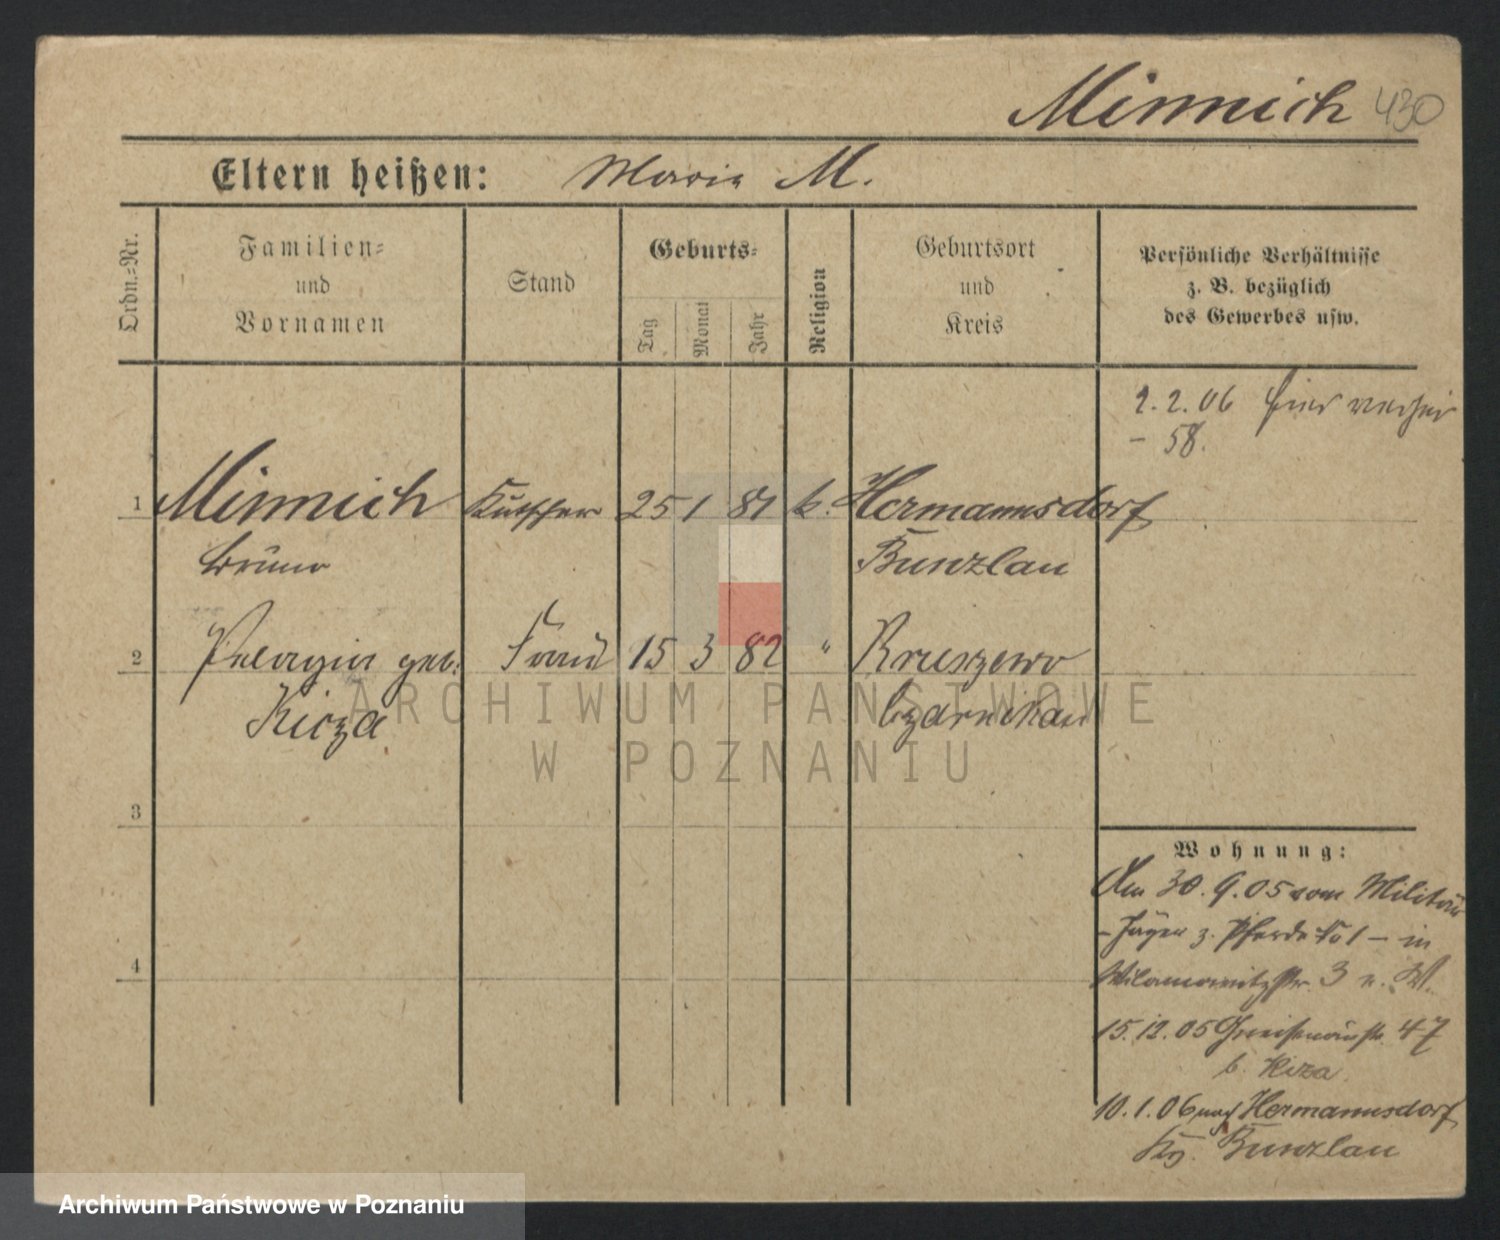 Minnich 430
Eltern heißen: Marie M.
Ordn.=Nr.
Familien=
und
Vornamen
Stand
Geburts=
Tag
Monat
Jahr
Religion
Geburtsort
und
Kreis
Persönliche Verhältnisse
z. B. bezüglich
des Gewerbes usw.
2.2.06 hier verhei
- 58.
1 Minnich Kutscher 25 1 81 k. Hermannsdorf
Bruno Bunzlau
2 Pelagia geb. Frau 15 3 82 " Kruszewo
Kicza Czarnikau
3
4
Wohnung:
Am 30.9.05 vom Militär
- Jäger z. Pferde No 1 - in
Wilamowitzstr. 3 n. W.
15.12.05 Gneisenaustr. 47
b. Kicza
10.1.06 nach Hermannsdorf
Krs. Bunzlau
ARCHIWUM PAŃSTWOWE
W POZNANIU
Archiwum Państwowe w Poznaniu